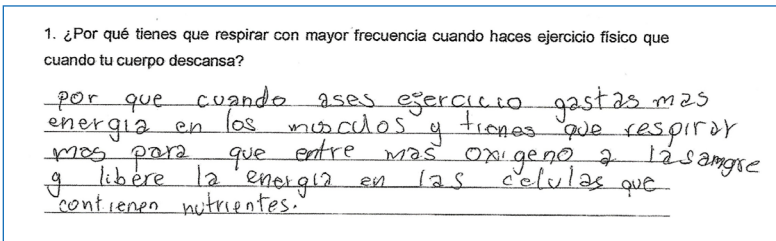 1. ¿Por qué tienes que respirar con mayor frecuencia cuando haces ejercicio físico que
cuando tu cuerpo descansa?
por que cuando ases ejercicio gastas mas
energia en los musculos y tienes que respirar
mas para que entre mas oxigeno a la samgre
y libere la energia en las celulas que
contienen nutrientes.